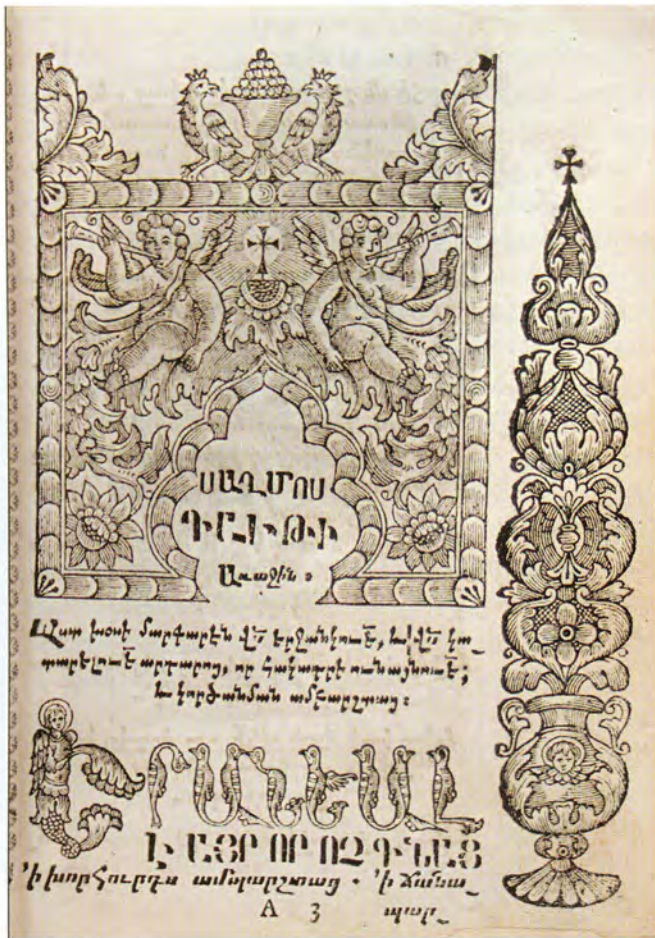 ՍԱՂՄՈՍ
ԴԱՒԹԻ
Առաջին ։
Աստ խօսի մարգարէն վս երջանկուե, և վս կա_
տարելուե արդարոց, որ հակադրէ ունայնուե;
և կործանման ամբարշտաց ։
ԵՐԱՆԵԱԼ
Է ԱՅՐ ՈՐ ՈՉ ԳՆԱՑ
՚ի խորհուրդս ամպարշտաց ․ ՚ի ճանա_
A 3 պար_